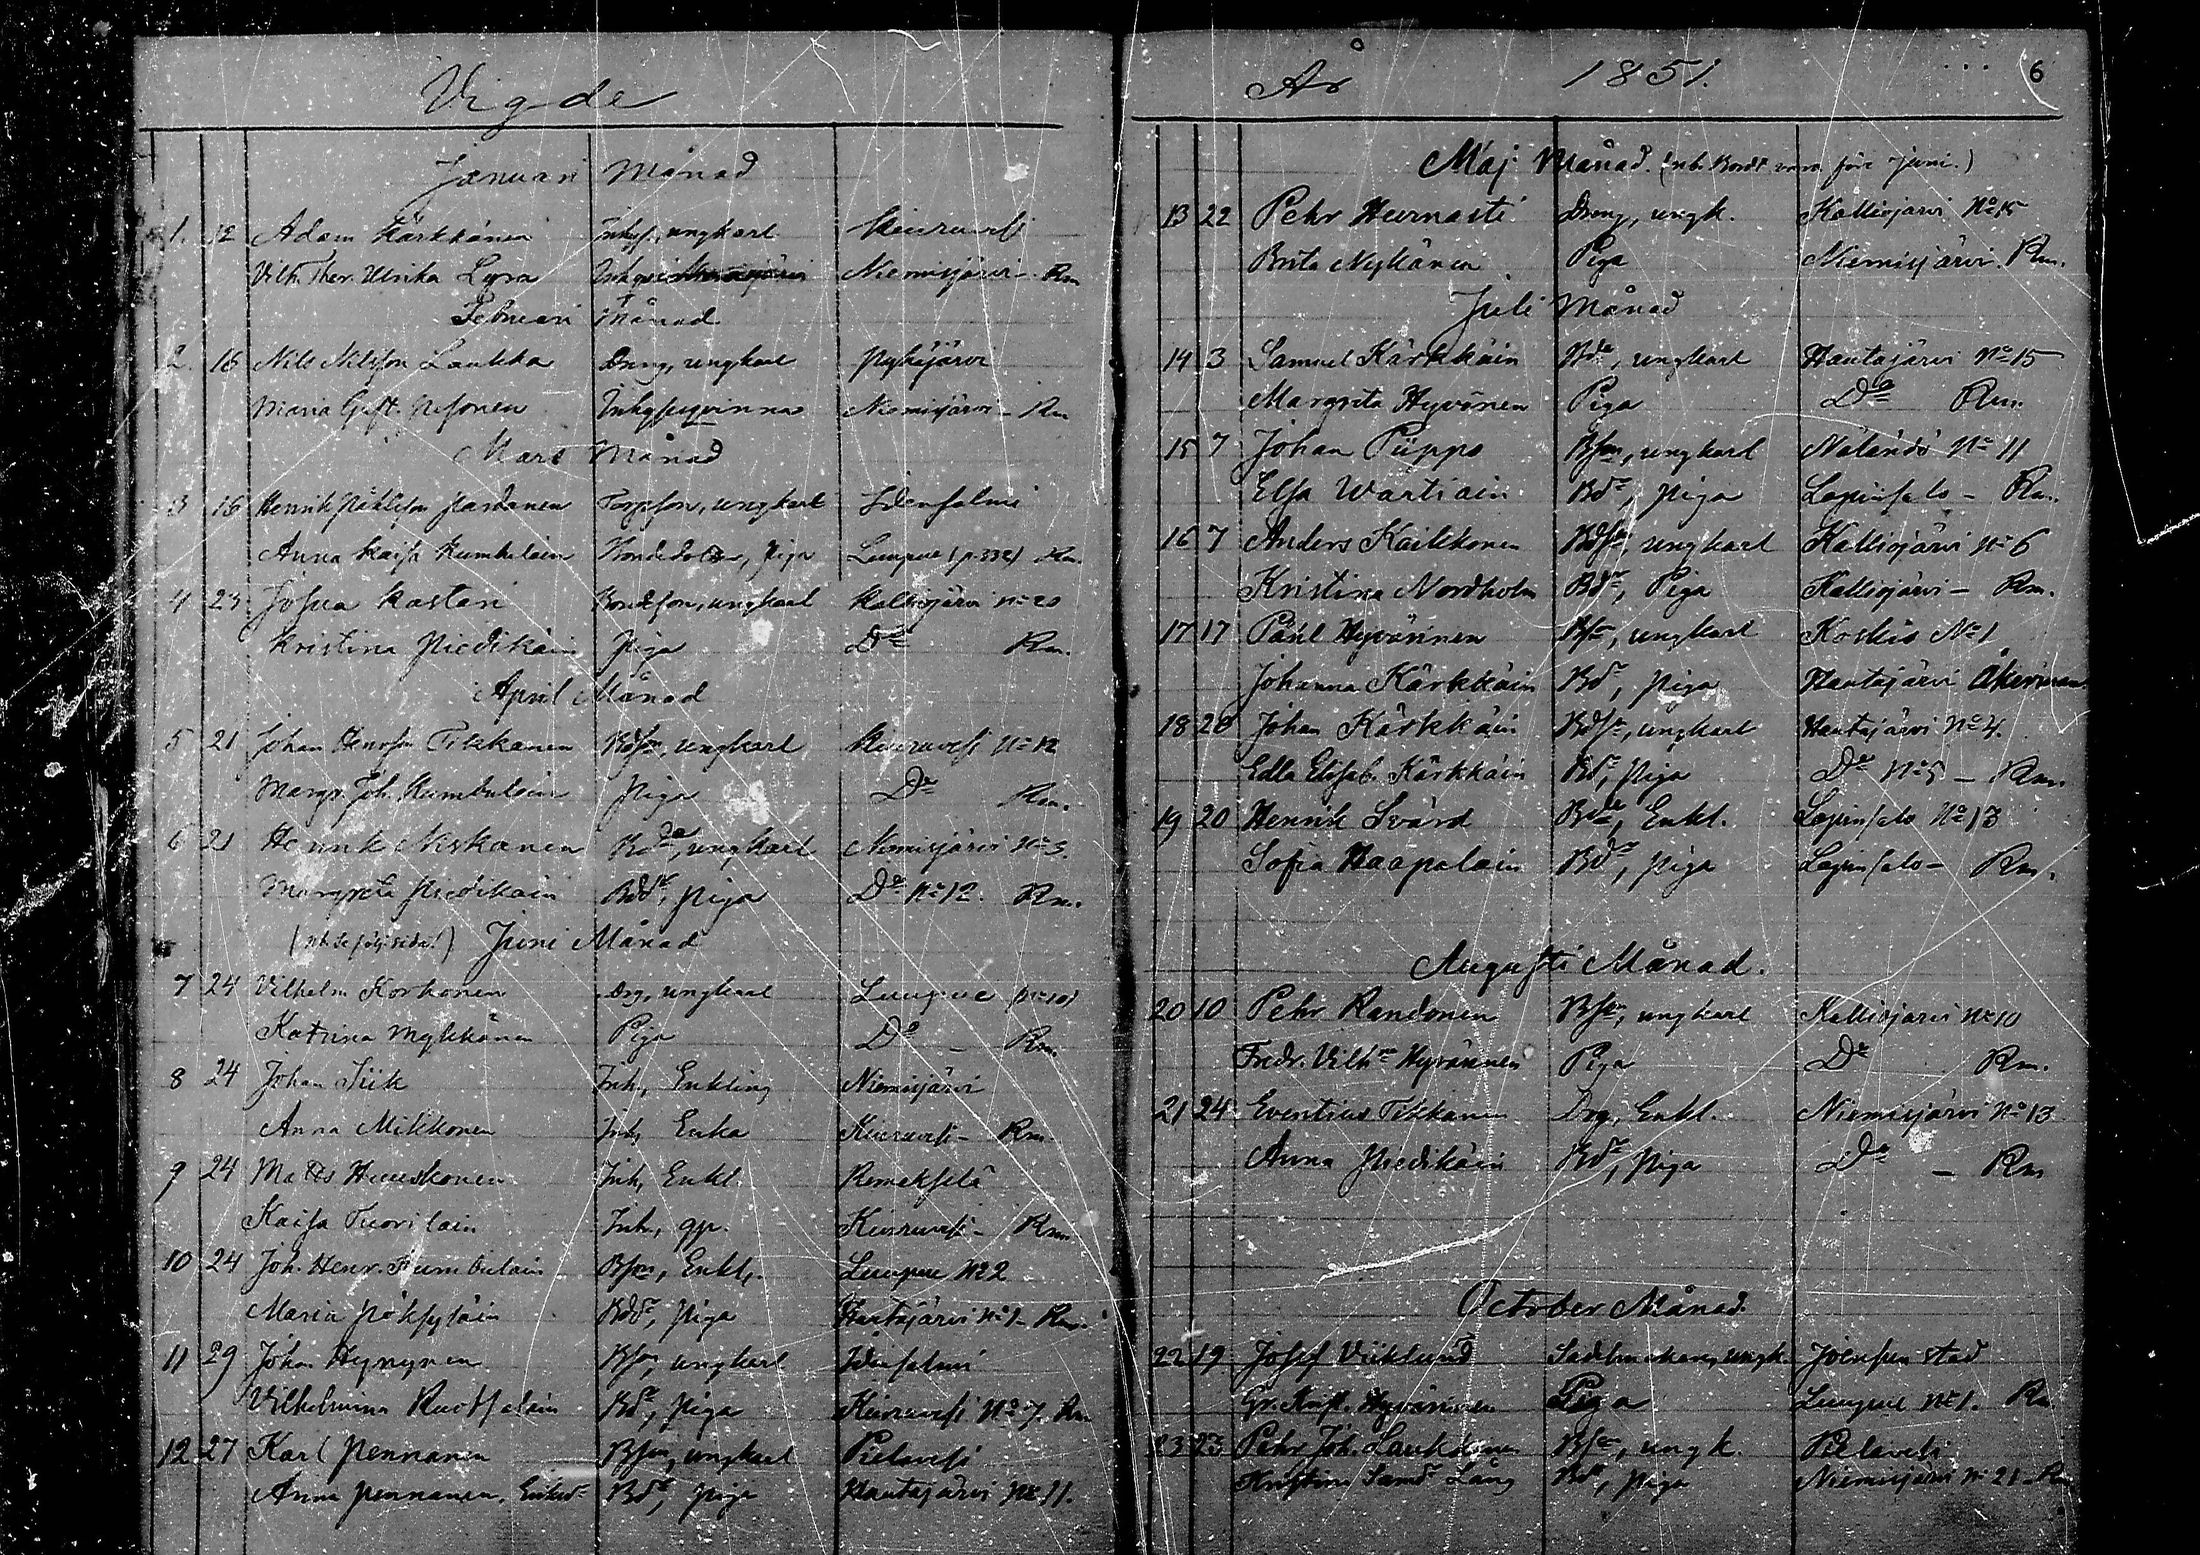 Vigde
Januari Månad
1. 12 Adam Kärkkänen Inhys, ungkarl Kiuruvesi
Vilh. Ther. Ulrika Lyra Niemisjärvi - Rm
Februari Månad
2. 16 Nils Nilsson Laukka Dreng, ungkarl Pyhäjärvi
Maria Gust. Nisonen Inhysqvinna Niemisjärvi - Rm
Mars Månad
3 16 Henrik Påhlsson Torpson, ungkarl Idensalmi
Anna Kaisa Kumbulain Bondedotter, Piga Luupue (p. 332) Rm.
4 23 Josua Kastari Bondeson, ungkarl Kallisjärvi No 20
Kristina Piedikäin Piga Do Rm.
April Månad
5 21 Johan Henrson Tikkanen Bdson, ungkarl Kiuruvesi No 12
Margr. Joh. Kumbulain Piga Do Rm.
6 21 Henrik Niskanen Bde, ungkarl Niemisjärvi No 3.
Margreta Piedikäin Bddr, piga Do No 12. Rm.
(nb. se följ. sida!) Juni Månad
7 24 Vilhelm Korhonen Drg, ungkarl Luupue
Katrina Mykkänen Piga Do - Rm.
8 24 Johan Tiik Inh, Enkling Niemisjärvi
Anna Mikkonen Inh, Enka Kiuruvesi - Rm.
9 24 Matts Huuskonen Inh, Enkl. Remeksela
Kaisa Tuorilain Inh, qp. Kiuruvesi - Rm.
10 24 Joh. Henr. Kumbulain Bson, Enkl. Luupue No 2
Maria Pöksyläin Bddr, piga Hautajärvi No 1 - Rm.
11 29 Johan Hynynen Bson, ungkarl Idensalmi
Vilhelmina Ruotsalain Bdr, piga Kiuruvesi No 7. Rm
12 27 Karl Pennanen Bson, ungkarl Pielavesi
Anna Pennanen, Bdr, piga Hautajärvi No 11.
År 1851. 6
Maj Månad. (nb. Bordt vara före Juni.)
13 22 Pehr Hurnasti Dreng, ungk. Kallisjärvi No 15
Brita Nykänen Piga Niemisjärvi. Rm.
Juli Månad
14 3 Samuel Kärkkäin Bde, ungkarl Hautajärvi No 15
Margreta Hyvönen Piga Do Rm.
15 7 Johan Piippo Bson, ungkarl Näländö No 11
Elsa Wartiain Bdr, piga Lapinsalo - Rm.
16 7 Anders Kaikkonen Bdson, ungkarl Kallisjärvi No 6
Kristina Nordholm Bdr, Piga Kallisjärvi - Rm.
17 17 Påhl Hyvärinen Bson, ungkarl Koskis No 1
Johanna Kärkkäin Bdr, piga Hautajärvi Åkerman
18 20 Johan Kärkkäin Bdson, ungkarl Hautajärvi No 4.
Edla Elisab. Kärkkäin Bdr, piga Do No 5 - Rm.
19 20 Henrik Svärd Bde, Enkl. Lapinsalo No 13
Sofia Haapalain Bdr, piga Lapinsalo - Rm.
Augusti Månad.
20 10 Pehr Randonen Bson, ungkarl Kallisjärvi No 10
Fredr. Vilhna Hyvärinen Piga Do Rm.
21 24 Eventius Tikkanen Drg, Enkl. Niemisjärvi No 13
Anna Piedikäin Bdr, piga Do - Rm
October Månad.
22 19 Josef Viiklund Sadelmakare, ungk. Joensuu stad
Gr. Krist. Hyvärinen Piga Luupue No 1. Rm
23 23 Pehr Joh. Laukkanen Bson, ungk. Pielavesi
Kristina Samdr Lång Bdr, piga Niemisjärvi No 21 - Rm